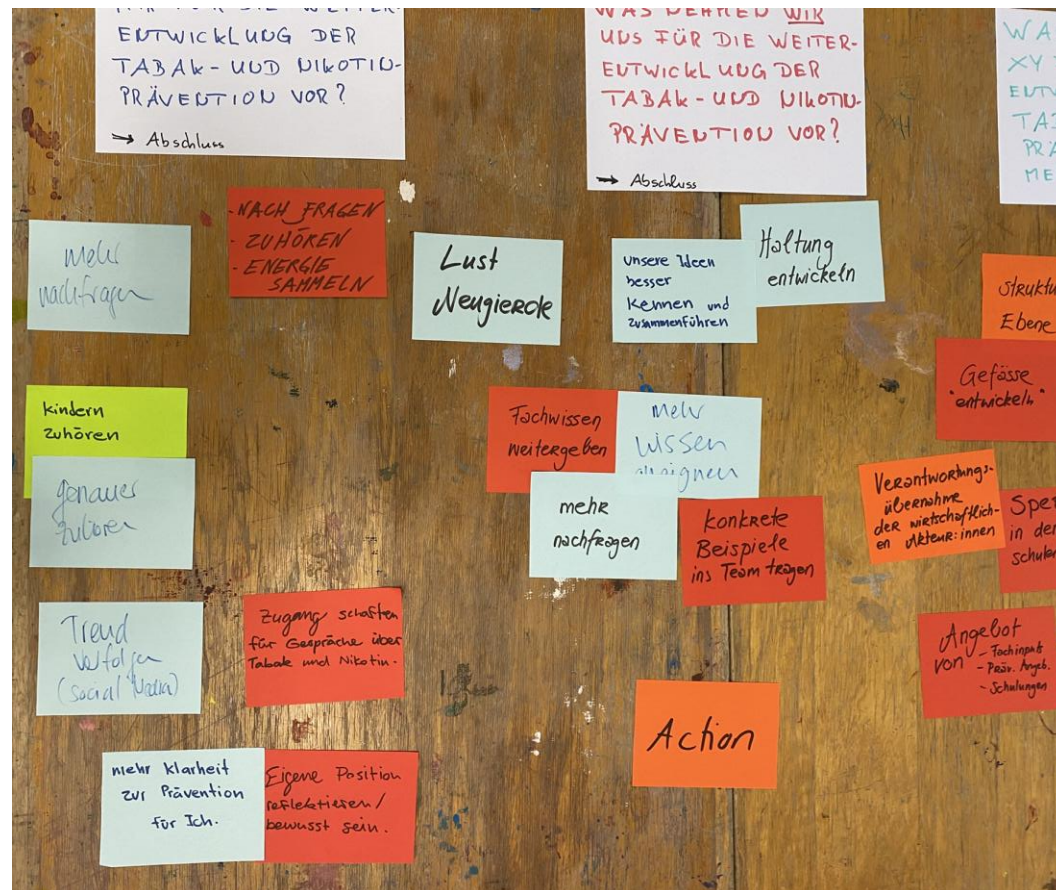 MIR FÜR DIE WEITER-
ENTWICKLUNG DER
TABAK- UND NIKOTIN-
PRÄVENTION VOR?
→ Abschluss
WAS NEHMEN WIR
UNS FÜR DIE WEITER-
ENTWICKLUNG DER
TABAK- UND NIKOTIN-
PRÄVENTION VOR?
→ Abschluss
WA
XY
ENTW
TA
PRÄ
ME
mehr
nachfragen
- NACH FRAGEN
- ZUHÖREN
- ENERGIE
SAMMELN
Lust
Neugierde
unsere Ideen
besser
kennen und
zusammenführen
Haltung
entwickeln
Struktu
Ebene
Gefässe
"entwickeln"
kindern
zuhören
genauer
zuhören
Fachwissen
weitergeben
mehr
wissen
aneignen
mehr
nachfragen
konkrete
Beispiele
ins Team tragen
Verantwortungs-
übernahme
der wirtschaftlich-
en Akteur:innen
Spez
in der
schule
Trend
verfolgen
(social Media)
Zugang schaffen
für Gespräche über
Tabak und Nikotin.
Angebot
von - Fachinputs
- Präv. Angeb.
- Schulungen
Action
mehr klarheit
zur Prävention
für Ich.
Eigene Position
reflektieren/
bewusst sein.